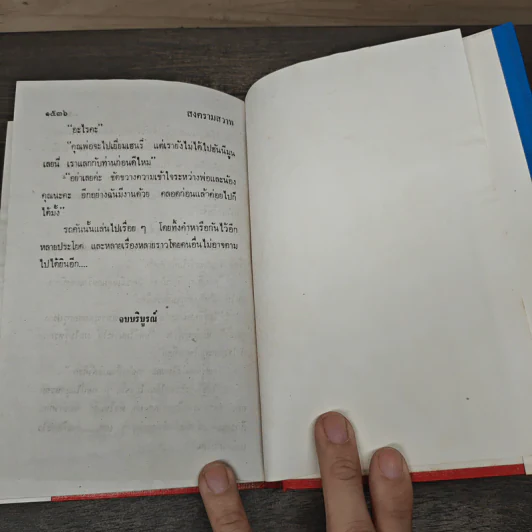 ๑๕๓๖ สงครามสวาท
"อะไรคะ"
"คุณพ่อจะไปเยี่ยมเฮนรี่ แต่เรายังไม่ได้ไปฮันนีมูน
เลยนี่ เราแลกกับท่านก่อนดีไหม"
"อย่าเลยค่ะ ขัดขวางความเข้าใจระหว่างพ่อและน้อง
คุณนะคะ อีกอย่างฉันมีงานด้วย คลอดก่อนแล้วค่อยไปก็
ได้มั้ง"
รถคันนั้นแล่นไปเรื่อย ๆ โดยทิ้งคำหารือกันไว้อีก
หลายประโยค และหลายเรื่องหลายราวโดยคนอื่นไม่อาจตาม
ไปได้ยินอีก....
จบบริบูรณ์